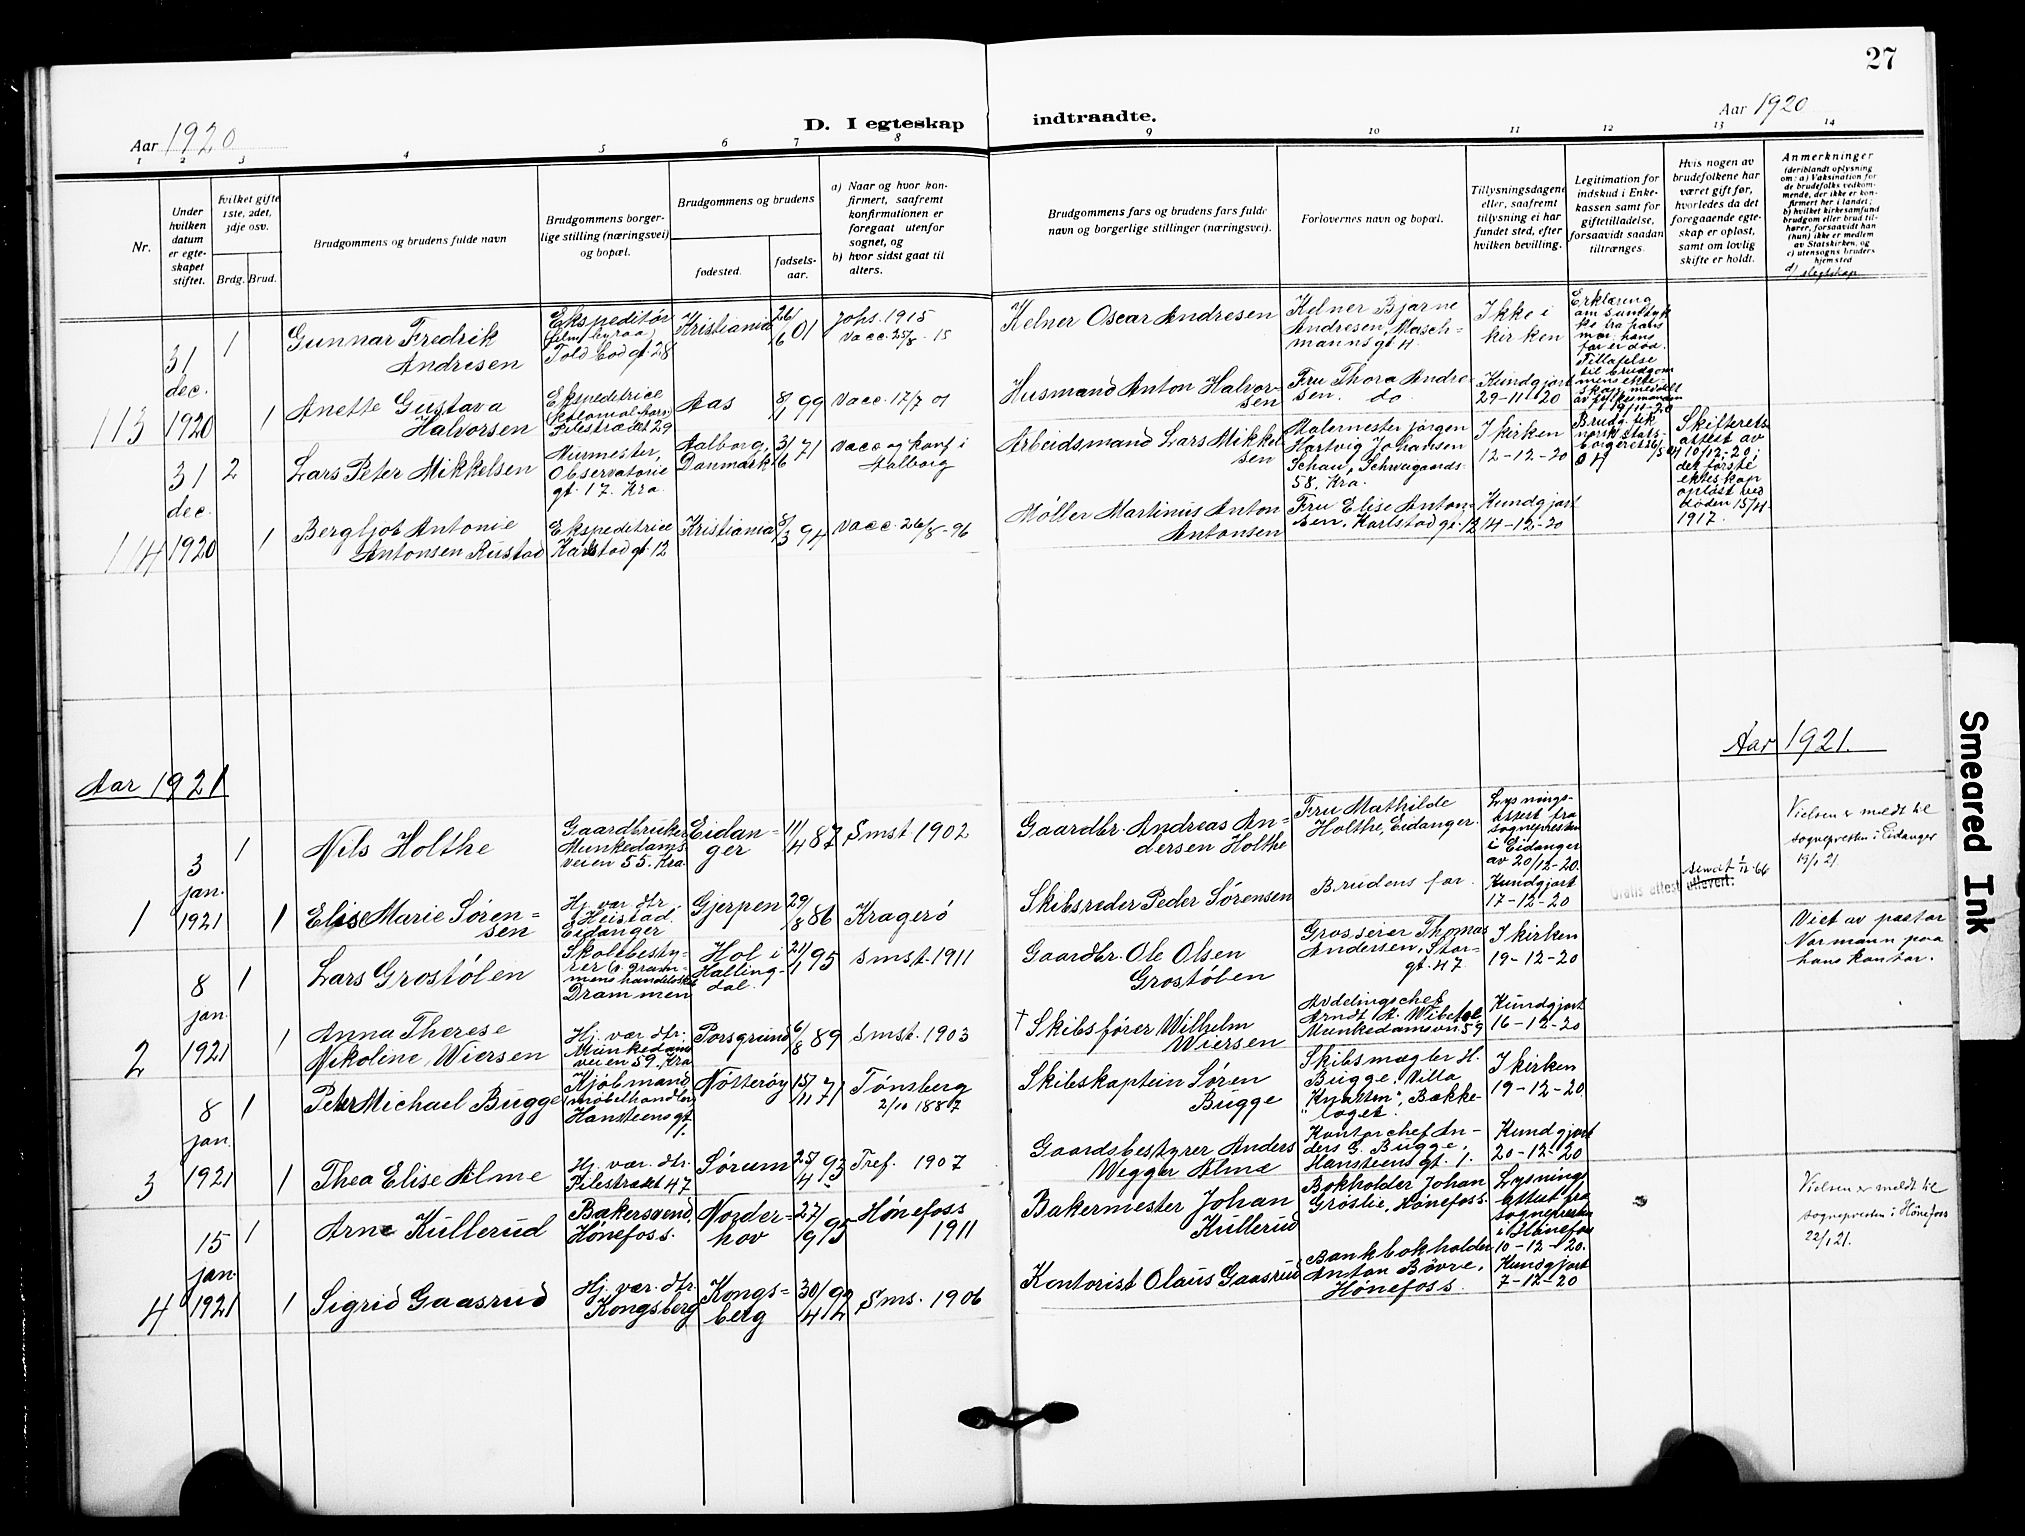 27
Aar 1920
D. I egteskap indtraadte.
Aar 1920
1 2 3 4 5 6 7 8 9 10 11 12 13 14
Nr.
Under hvilken datum er egteskapet stiftet.
Hvilket gifte 1ste, 2det, 3dje osv.
Brdg. Brud.
Brudgommens og brudens fulde navn
Brudgommens borgerlige stilling (næringsvei) og bopæl.
Brudgommens og brudens
fødested.
fødselsaar.
a) Naar og hvor konfirmert, saafremt konfirmationen er foregaat utenfor sognet, og
b) hvor sidst gaat til alters.
Brudgommens fars og brudens fars fulde navn og borgerlige stillinger (næringsvei).
Forlovernes navn og bopæl.
Tillysningsdagene eller, saafremt tillysning ei har fundet sted, efter hvilken bevilling.
Legitimation for indskud i Enkekassen samt for giftetilladelse, forsaavidt saadan tiltrænges.
Hvis nogen av brudefolkene har været gift før, hvorledes da det foregaaende egteskap er opløst, samt om lovlig skifte er holdt.
Anmerkninger
(deriblandt oplysning om: a) Vaksination for de brudefolks vedkommende, der ikke er konfirmert her i landet;
b) hvilket kirkesamfund brudgom eller brud tilhører, forsaavidt han (hun) ikke er medlem av Statskirken, og
c) utensogns bruders hjemsted
d) slegtskap
113
31 dec. 1920
1
Gunnar Fredrik
Andresen
Ekspeditør
Told bodgt. 28
Kristiania
26/6 01
Johs. 1915
Vacc. 25/8 - 15
Kelner Oscar Andresen
Kelner Bjarne
Andresen, Masch-
manns gt. 4.
Ikke i
kirken
Erklæring
om samtyk
ke fra hans
mor; hans
far er død.
Tillatelse
til brudgom
mens ekte-
skap meddelt
av fylkesmannen
19/11-20
1
Anette Gustava
Halvorsen
Ekspedetrice
Pilestrædet 29
Aas
8/1 99
Vacc. 17/7 01
Husmand Anton Halvor-
sen
Fru Thora Andre-
sen. do
Kundgjort
29-11-20
114
31 dec. 1920
2
Lars Peter Mikkelsen
Murmester,
Observatorie
gt. 17. Kra.
Aalborg,
Danmark
31/6 71
Vacc og konf i
Aalborg
Arbeidsmand Lars Mikkel
sen
Malermester Jørgen
Hartvig Johansen
Schau, Schweigaards
58. Kra.
I kirken
12-12-20
Brudg. fik
norsk stats-
borgerret
Skifterets
attest av
10/12-20;
det første
ekteskap
opløst ved
døden 15/4
1917.
1
Bergljot Antonie
Antonsen Rustad
Ekspedetrice
Karlstad gt. 12
Kristiania
8/3 94
Vacc. 26/8-96
Møller Martinus Anton
Antonsen
Fru Elise Anton-
sen, Karlstad gt. 12
Kundgjort
14-12-20
Aar 1921
Aar 1921.
1
3 jan. 1921
1
Nils Holthe
Gaardbruker
Munkedams
veien 55. Kra.
Eidan-
ger
11/4 87
Smst 1902
Gaardbr. Andreas An-
dersen Holthe
Fru Mathilde
Holthe, Eidanger.
Lysnings-
attest fra
sognepresten
i Eidanger
av 20/12-20.
Vielsen er meldt til
sognepresten i Eidanger
1
Elise Marie Søren-
sen
Hj. vær. dtr.
Heistad.
Eidanger
Gjerpen
29/8 86
Kragerø
Skibsreder Peder Sørensen
Brudens far.
Kundgjort
17-12-20
Gratis attest utlevert:
2
8 jan. 1921
1
Lars Grostølen
Skolebesty-
rer v. Dram-
mens handelssk.
Drammen
Hol i
Halling-
dal.
21/1 95
Smst. 1911
Gaardbr. Ole Olsen
Grostølen
Grosserer Thomas
Andersen, Stor-
gt. 47.
I kirken
19-12-20
Viet av pastor
Normann paa
hans kontor.
1
Anna Therese
Nikoline Wiersen
Hj. vær. dtr.
Munkedams
veien 59. Kra
Porsgrund
6/8 89
Smst. 1903
† Skibsfører Wilhelm
Wiersen
Avdelingschef
Arndt A. Wibetoe
Munkedamsvn 59
Kundgjort
16-12-20
3
8 jan. 1921
1
Peter Michael Bugge
Kjøbmand,
(møbelhandler)
Hansteens gt.
1.
Nøtterøy
15/11 71
Tønsberg
2/10 1887
Skibskaptein Søren
Bugge
Skibsmægler H.
Bugge, Villa
"Knatten", Bække-
laget.
I kirken
19-12-20.
1
Thea Elise Alme
Hj. vær. dtr.
Pilestrædet 47
Sørum
25/4 93
Tref. 1907
Gaardsbestyrer Anders
Wegger Alme
Kontorchef An-
ders G. Bugge,
Hansteens gt. 1.
Kundgjort
20-12-20
4
15 jan. 1921
1
Arne Kullerud
Bakersvend,
Hønefoss.
Norder-
hov
27/9 95
Hønefoss
1911
Bakermester Johan
Kullerud
Bokholder Johan
Grøslie, Hønefoss.
Lysnings
attest fra
sognepresten
i Hønefoss
10-12-20.
Vielsen er meldt til
sognepresten i Hønefoss
22/1 21.
1
Sigrid Gaasrud
Hj. vær. dtr.
Kongsberg
Kongs-
berg
30/4 92
Sms. 1906
Kontorist Olaus Gaasrud
Bankbokholder
Anton Bøvre,
Hønefoss.
Kundgjort
7-12-20
Smeared Ink